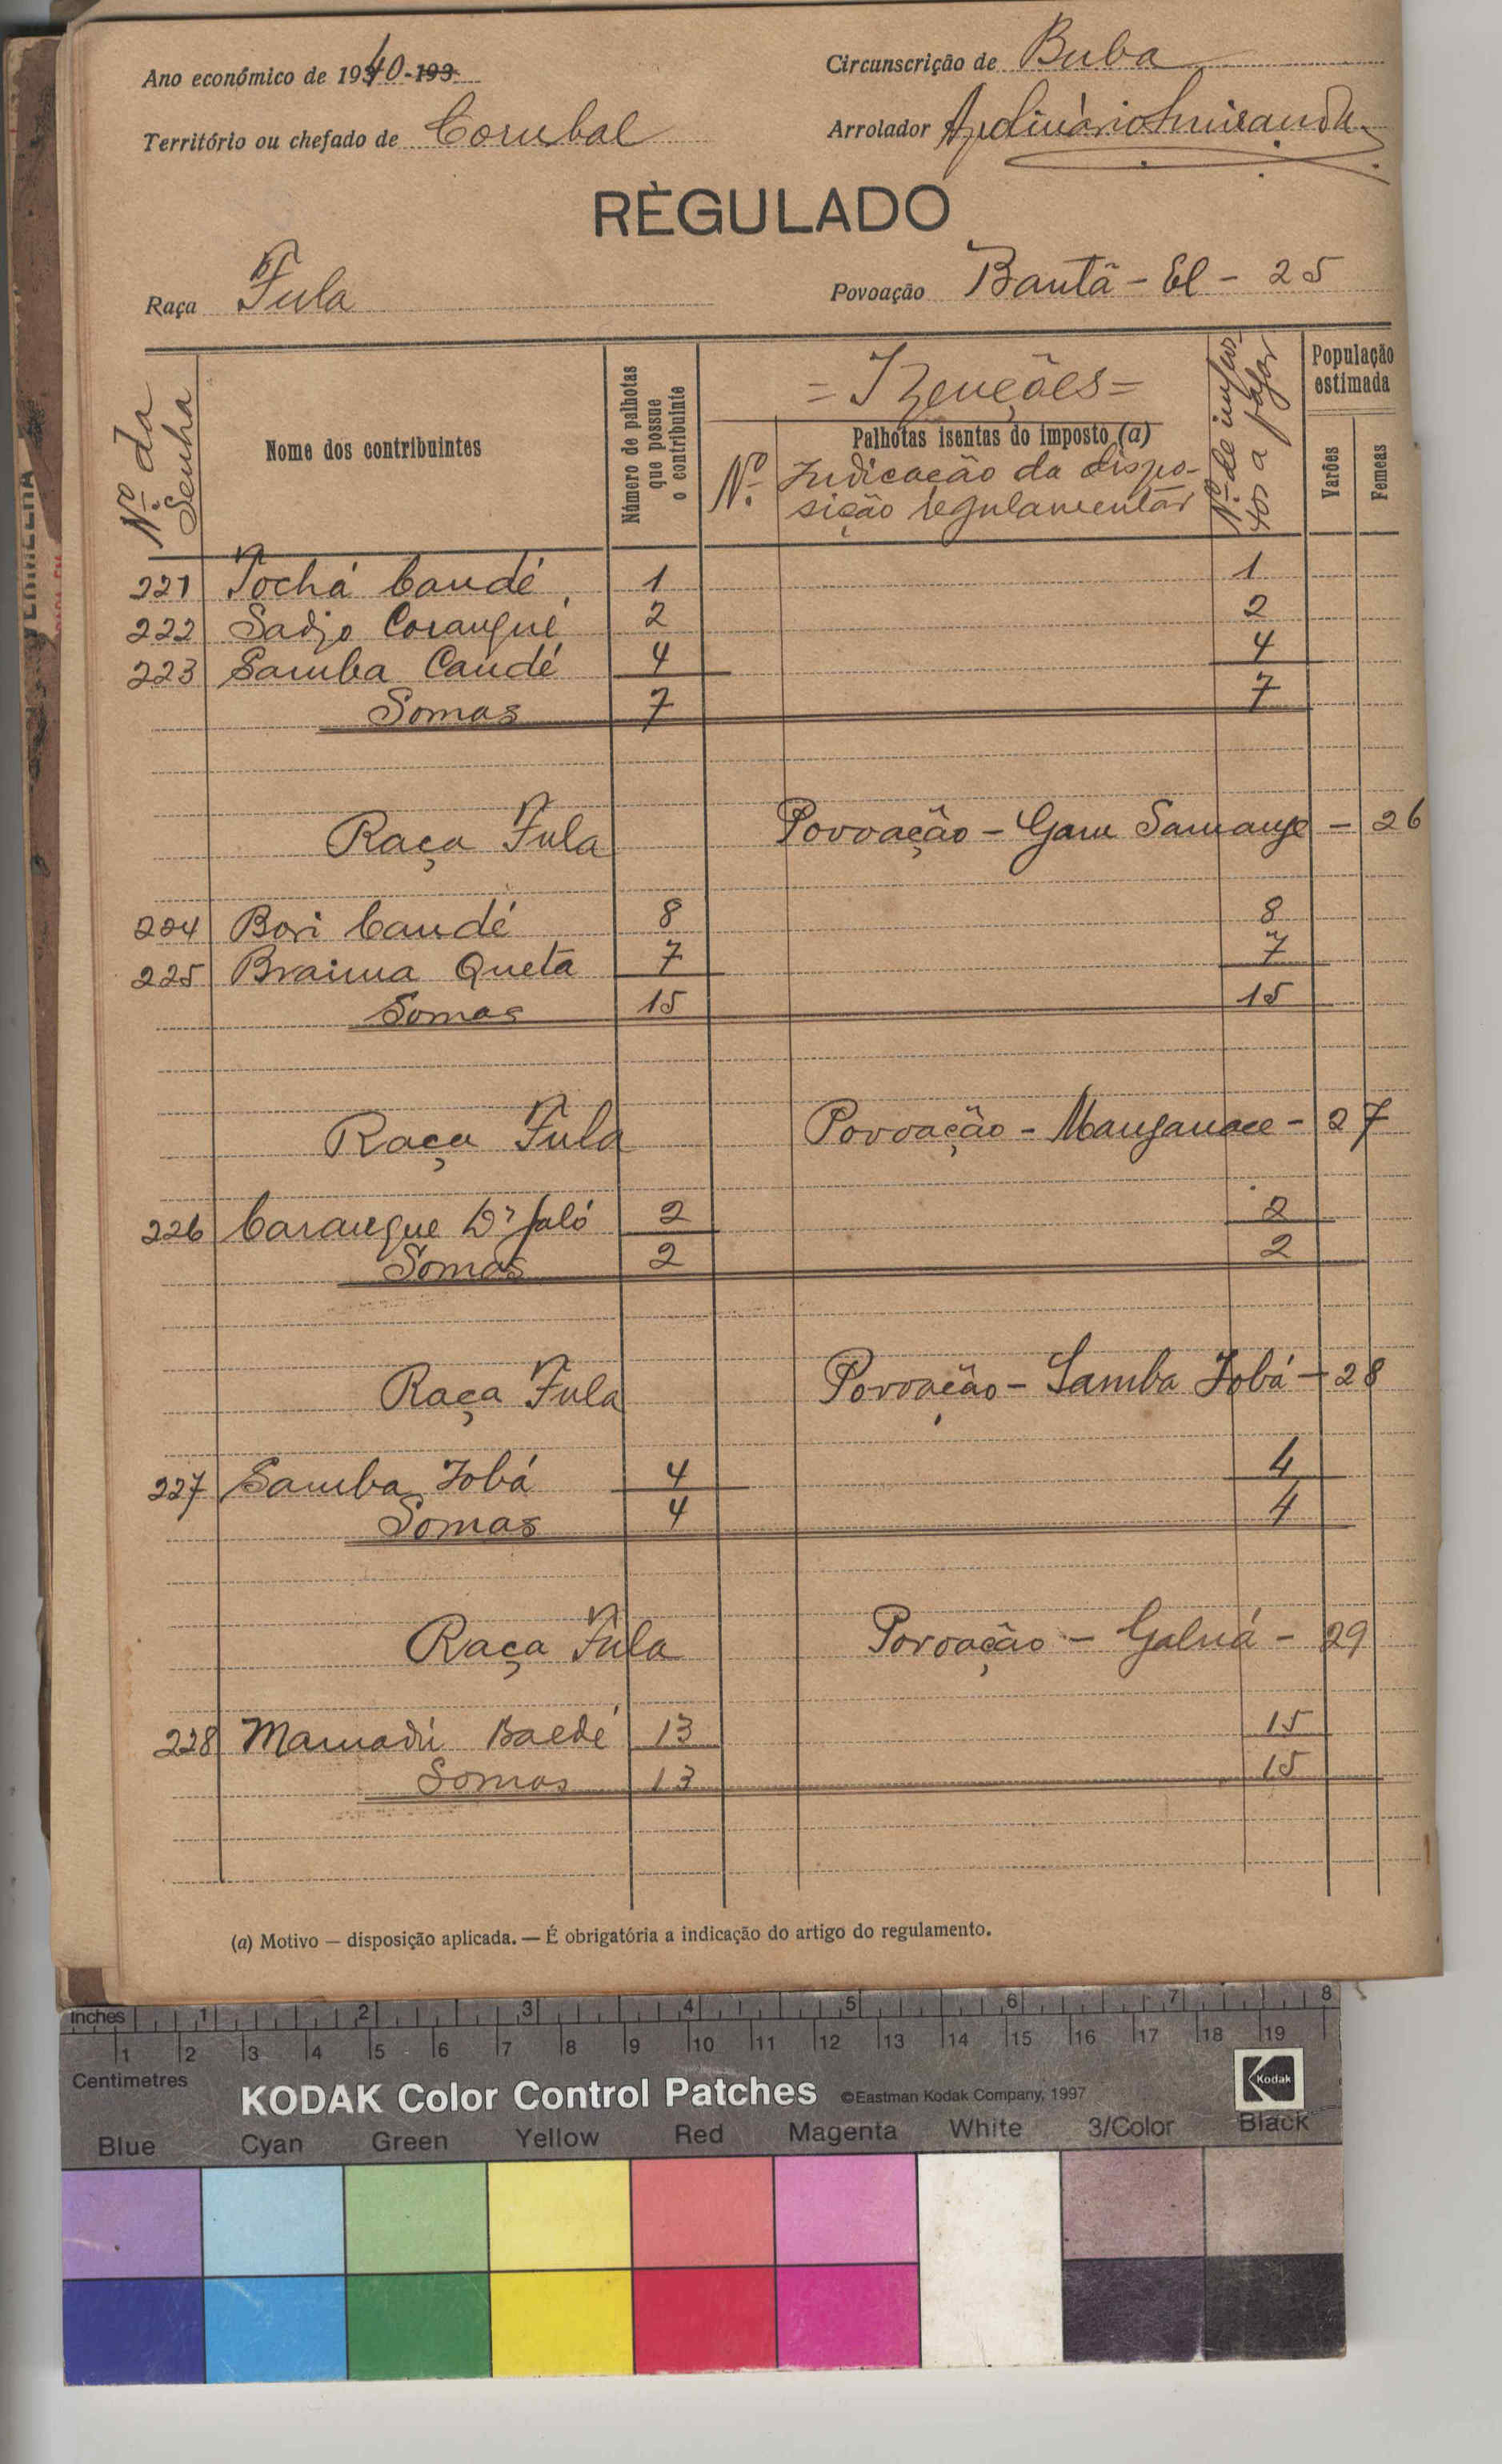 Ano económico de 1940-193
Circunscrição de Buba
Território ou chefado de Corubal
Arrolador
RÈGULADO
Raça Fula
Povoação Bantã - El - 25
Nº da Senha
Nome dos contribuintes
Número de palhotas que possue o contribuinte
= Izenções =
Palhotas isentas do imposto (a)
Nº.
Indicação da dispo-
sição regulamentar
Nº de impos-
tos a pagar
População estimada
Varões
Femeas
221 Tochá Candé 1 1
222 Sadjo Corangué 2 2
223 Samba Candé 4 4
Somas 7 7
Raça Fula Povoação - Gam Samange - 26
224 Bori Candé 8 8
225 Braima Queta 7 7
Somas 15 15
Raça Fula Povoação - - 27
226 Carangue Dº Jaló 2 2
Somas 2 2
Raça Fula Povoação - Samba Jobá - 28
227 Samba Jobá 4 4
Somas 4 4
Raça Fula Povoação - - 29
228 Mamadú Baldé 13 15
Somas 13 15
(a) Motivo — disposição aplicada. — É obrigatória a indicação do artigo do regulamento.
inches 1 2 3 4 5 6 7 8
1 2 3 4 5 6 7 8 9 10 11 12 13 14 15 16 17 18 19
Centimetres
KODAK Color Control Patches ©Eastman Kodak Company, 1997 Kodak
Blue Cyan Green Yellow Red Magenta White 3/Color Black